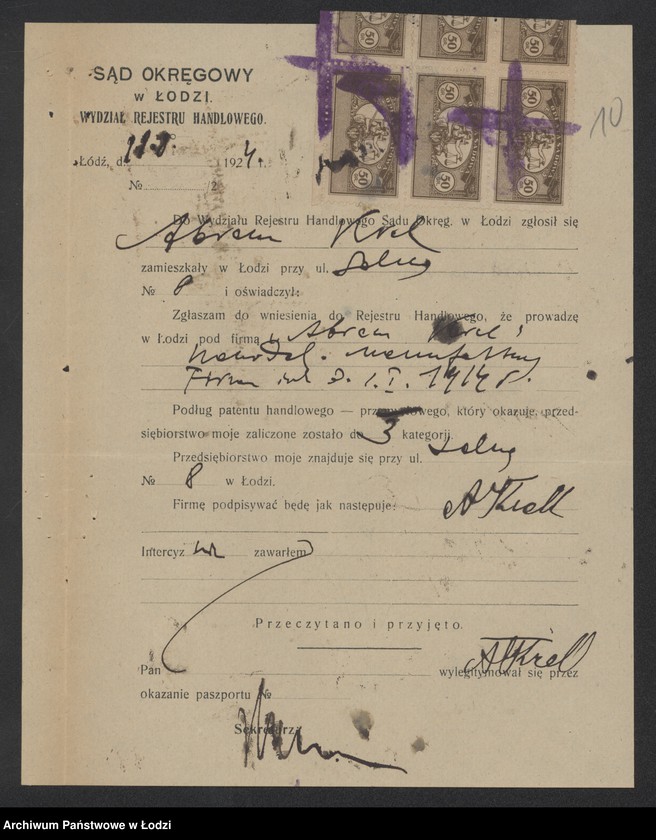 SĄD OKRĘGOWY
w ŁODZI.
WYDZIAŁ REJESTRU HANDLOWEGO.
10
Łódź, d. 1924 r.
№ /2
50 50 50
50 50 50
Do Wydziału Rejestru Handlowego Sądu Okręg. w Łodzi zgłosił się
Abram Krel
zamieszkały w Łodzi przy ul. Solna
№ 8 i oświadczył:
Zgłaszam do wniesienia do Rejestru Handlowego, że prowadzę
w Łodzi pod firmą „Abram Krel"
Firma istn. I. 1914 r.
Podług patentu handlowego — przemysłowego, który okazuję, przed-
siębiorstwo moje zaliczone zostało do 3 kategorji.
Przedsiębiorstwo moje znajduje się przy ul. Solna
№ 8 w Łodzi.
Firmę podpisywać będę jak następuje: A Krell
Intercyz nie zawarłem
Przeczytano i przyjęto.
A Krell
Pan wylegitymował się przez
okazanie paszportu №
Sekretarz
Archiwum Państwowe w Łodzi